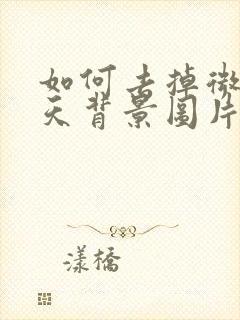 如何去掉微
天背景图片
漾橋